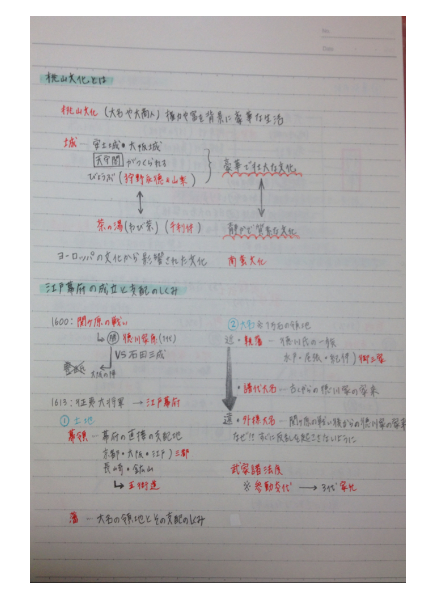 No.
Date
桃山文化とは
桃山文化 (大名や大商人) 権力や富を背景に豪華な生活
城 ― 安土城・大阪城
天守閣 がつくられる
びょうぶ (狩野永徳・山楽)
豪華で壮大な文化
茶の湯 (わび茶) (千利休)
静かで質素な文化
ヨーロッパの文化から影響された文化 南蛮文化
江戸幕府の成立と支配のしくみ
1600: 関ヶ原の戦い
徳川家康
VS 石田三成
大阪の陣
1613: 征夷大将軍 → 江戸幕府
① 土地
幕領 ― 幕府の直接の支配地
京都・大阪・江戸) 三都
長崎・鉱山
藩 ― 大名の領地とその支配のしくみ
② 大名 1万石の領地
近・親藩 ― 徳川家の一族
水戸・尾張・紀伊) 御三家
・譜代大名 ― 古くからの徳川家の家来
遠・外様大名 ― 関ヶ原の戦い後からの徳川家の家来
なぜ?: すぐに反乱を起こさないように
武家諸法度
※ 参勤交代 → 3代 家光